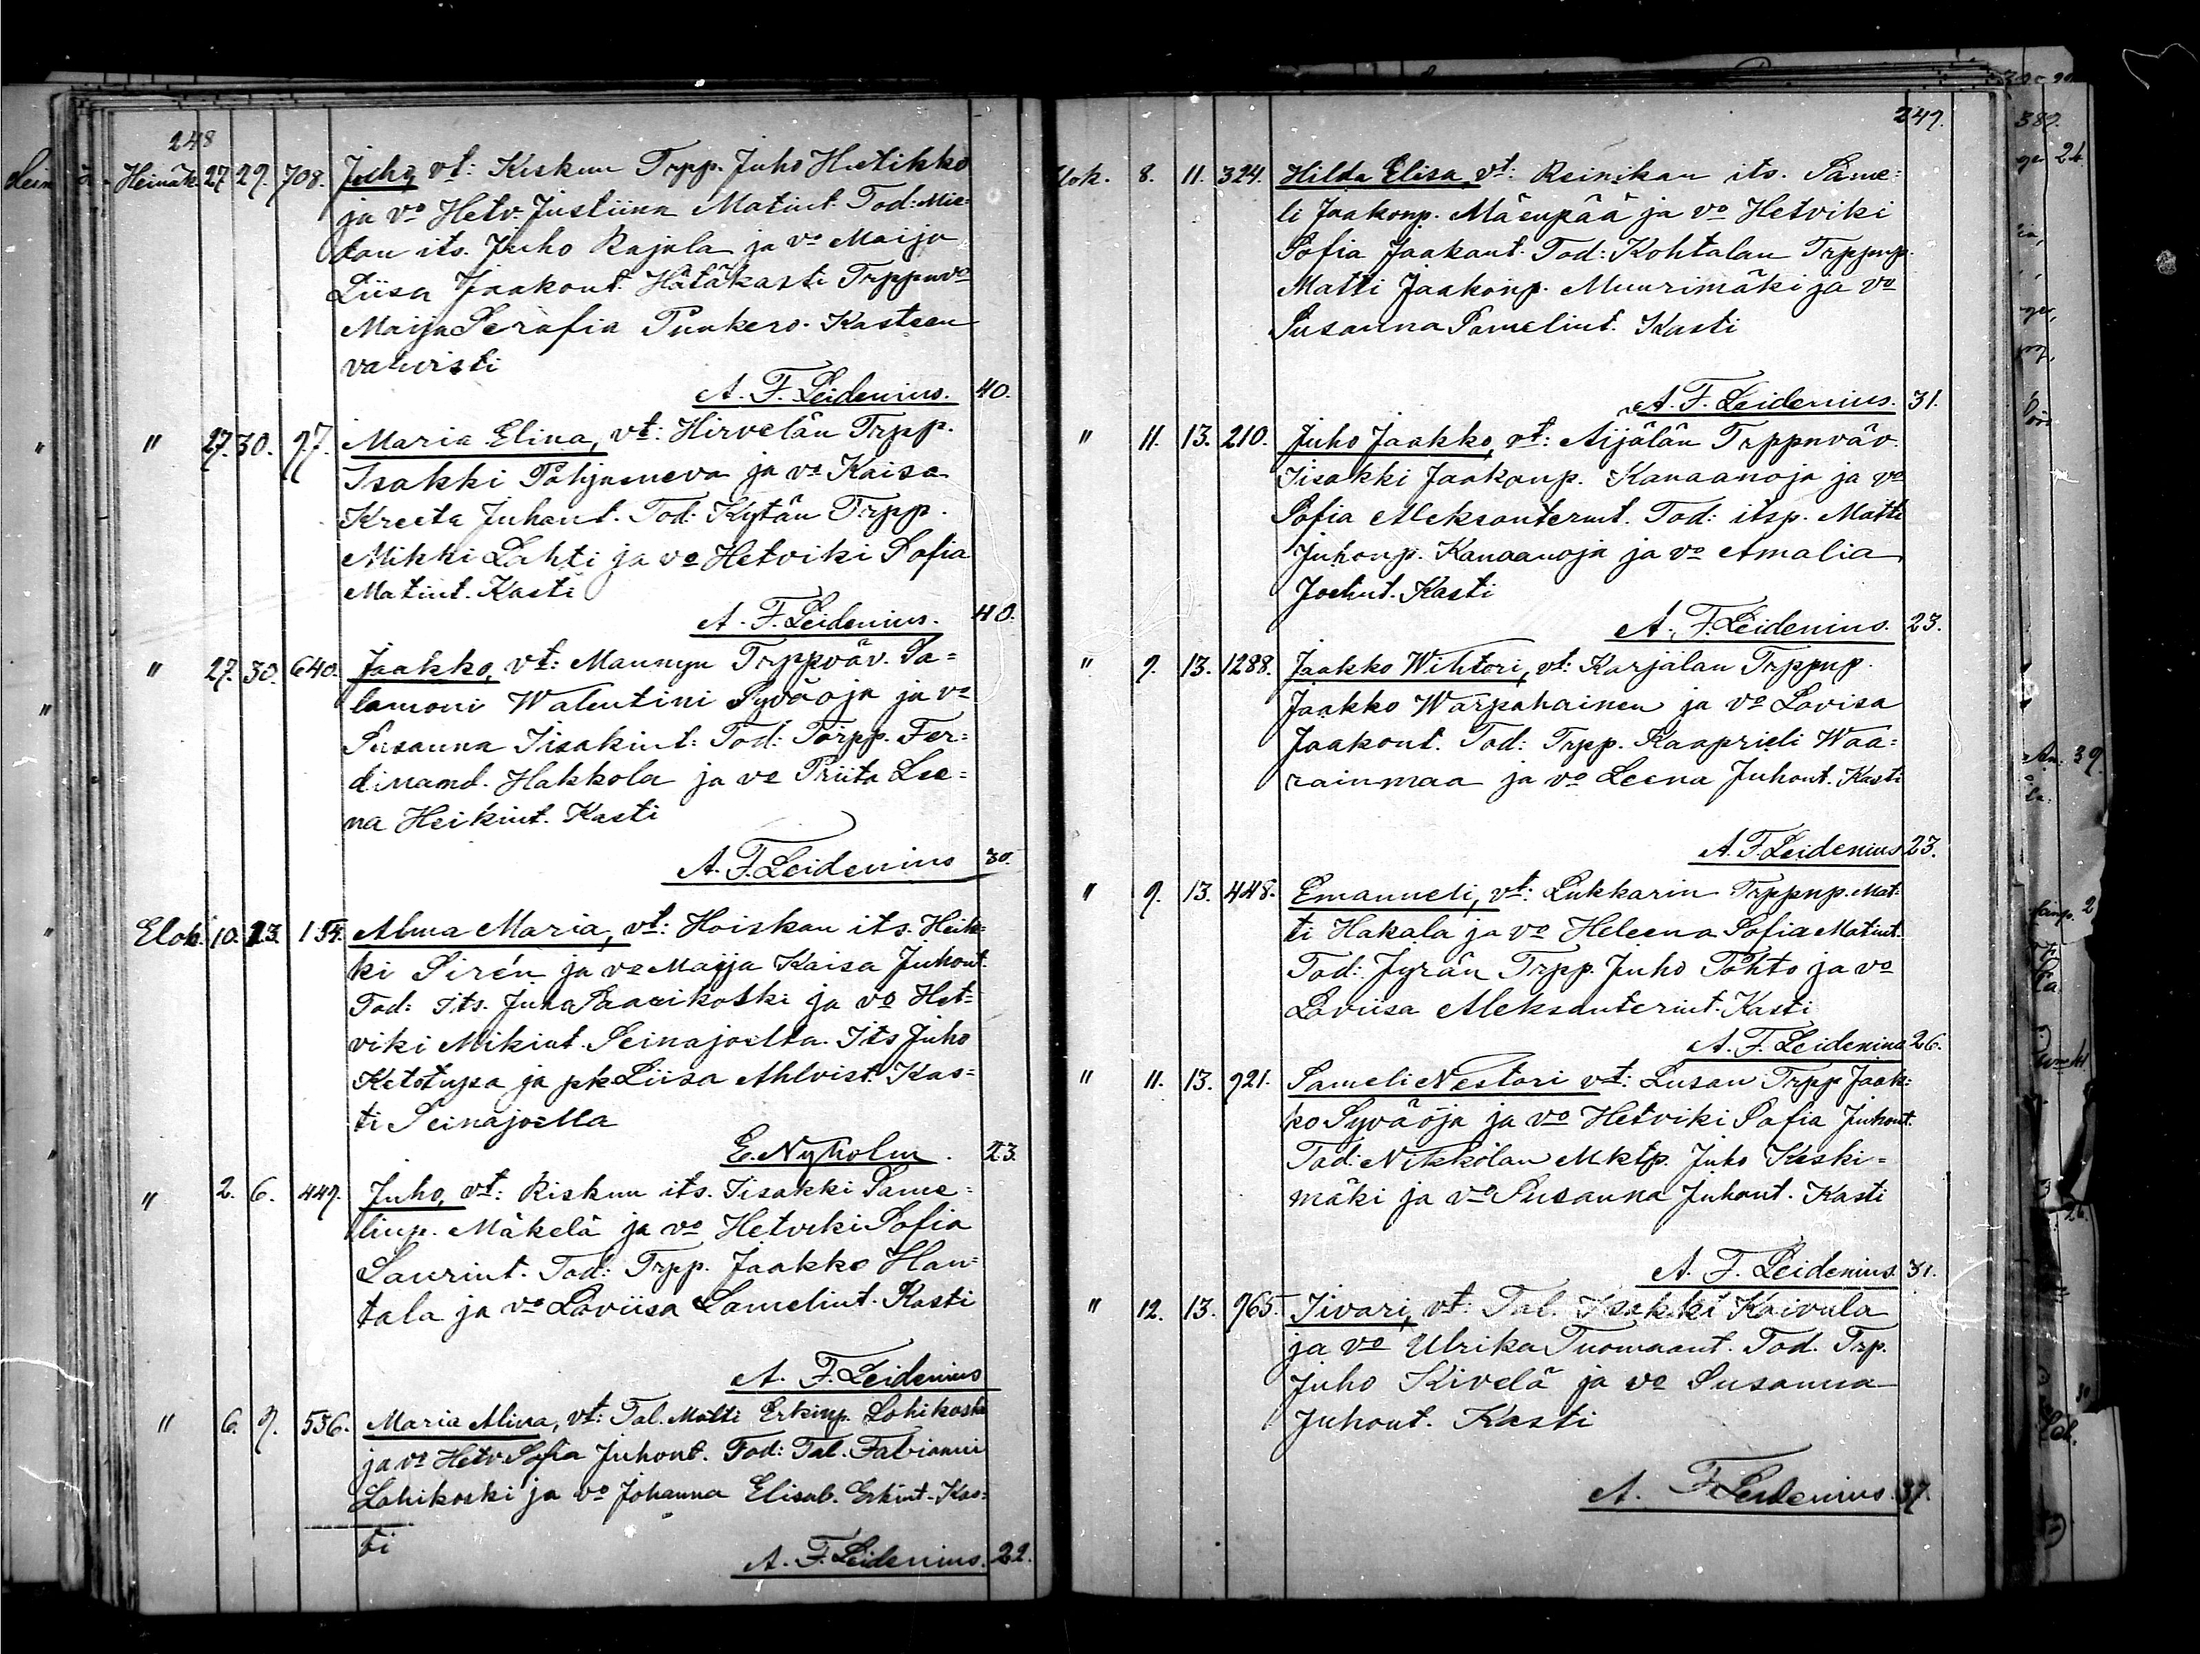 248
Heinäk. 27. 29. 708. Juho, vt: Kiskun Trpp. Juho Huttikko
ja vo Hetv. Justiina Matint. Tod: Mie=
dan its. Juho Rajala ja vo Maija
Liisa Jaakont. Hätäkasti Trppnvo
Maija Serafia Puakero. Kasteen
vahvisti
A. F. Leidenius. 40.
" 27. 30. 97. Maria Elina, vt: Hirvelän Trpp.
Isakki Pohjasneva ja vo Kaisa
Kreeta Juhont. Tod: Kytän Trpp.
Mikki Lahti ja vo Hetviki Sofia
Matint. Kasti
A. F. Leidenius. 40.
" 27. 30. 640. Jaakko, vt: Maunyn Trppväv. Sa=
lamoni Walentini Syväoja ja vo
Susanna Iisakint: Tod: Torpp. Fer=
dinamd. Hakkola ja vo Priita Lee=
na Heikint. Kasti
A. F. Leidenius 30.
Elok. 10. 13. 154. Alma Maria, vt: Hoiskan its. Heik=
ki Sirén ja vo Maija Kaisa Juhont.
Tod: its. Juha Saarikoski ja vo Het=
viki Mikint. Seinäjoelta. Its Juho
Ketotupa ja pk Liisa Ahlvist. Kas=
ti Seinäjoella
E. Nyholm. 23.
" 2. 6. 449. Juho, vt: Riskun its. Iisakki Same=
linp. Mäkelä ja vo Hetviki Sofia
Laurint. Tod: Trpp. Jaakko Han=
tala ja vo Loviisa Samelint. Kasti
A. F. Leidenius
" 6. 9. 536. Maria Alina, vt: Tal. Matti Erkinp. Lohikoski
ja vo Hetv Sofia Juhont. Tod: Tal. Fabianni
Lohikoski ja vo Johanna Elisab. Erkint. Kas=
ti
A. F. Leidenius. 22.
249.
Elok. 8. 11. 324. Hilda Elisa, vt: Reinikan its. Same=
li Jaakonp. Mäenpää ja vo Hetviki
Sofia Jaakont. Tod: Kohtalan Trppnp.
Matti Jaakonp. Muurimäki ja vo
Susanna Samelint. Kasti
A. F. Leidenius. 31.
" 11. 13. 210. Juho Jaakko, vt: Aijälän Trppnväv.
Iisakki Jaakonp. Kanaanoja ja vo
Sofia Aleksanterint. Tod: itsp. Matti
Juhonp. Kanaanoja ja vo Amalia
Joelint. Kasti
A. F. Leidenius. 23.
" 9. 13. 1288. Jaakko Wihtori, vt: Karjalan Trppnp.
Jaakko Warpahainen ja vo Lovisa
Jaakont. Tod: Trpp. Kaaprieli Waa=
rainmaa ja vo Leena Juhont. Kasti
A. F. Leidenius 23.
" 9. 13. 448. Emanueli, vt: Lukkarin Trppnp. Mat=
ti Hakala ja vo Heleena Sofia Matint.
Tod: Jyrän Trpp. Juho Pohto ja vo
Loviisa Aleksanterint. Kasti
A. F. Leidenius 26.
" 11. 13. 921. Sameli Nestori vt: Lusan Trpp Jaak=
ko Syväoja ja vo Hetviki Sofia Juhont.
Tod: Nikkolan Mktp. Juho Keski=
mäki ja vo Susanna Juhont. Kasti
A. F. Leidenius 31.
" 12. 13. 965. Iivari, vt: Tal. Isakki Koivula
ja vo Ulrika Tuomaant. Tod. Trp.
Juho Kivelä ja vo Susanna
Juhont. Kasti
A. F. Leidenius. 37.